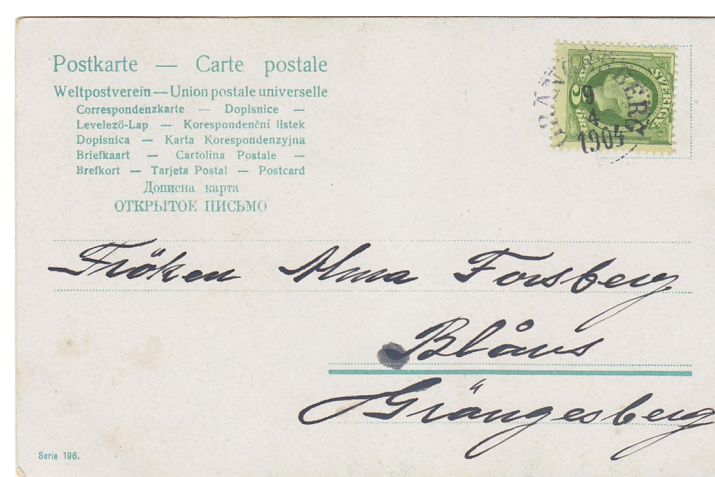 Postkarte — Carte postale
Weltpostverein — Union postale universelle
Correspondenzkarte — Dopisnice —
Levelező-Lap — Korespondenční listek
Dopisnica — Karta Korespondenzyjna
Briefkaart — Cartolina Postale —
Brefkort — Tarjeta Postal — Postcard
Дописна карта
ОТКРЫТОЕ ПИСЬМО
SVERIGE
9
4
1904
Fröken Alma Forsberg
Blåvs
Grängesberg
Serie 196.